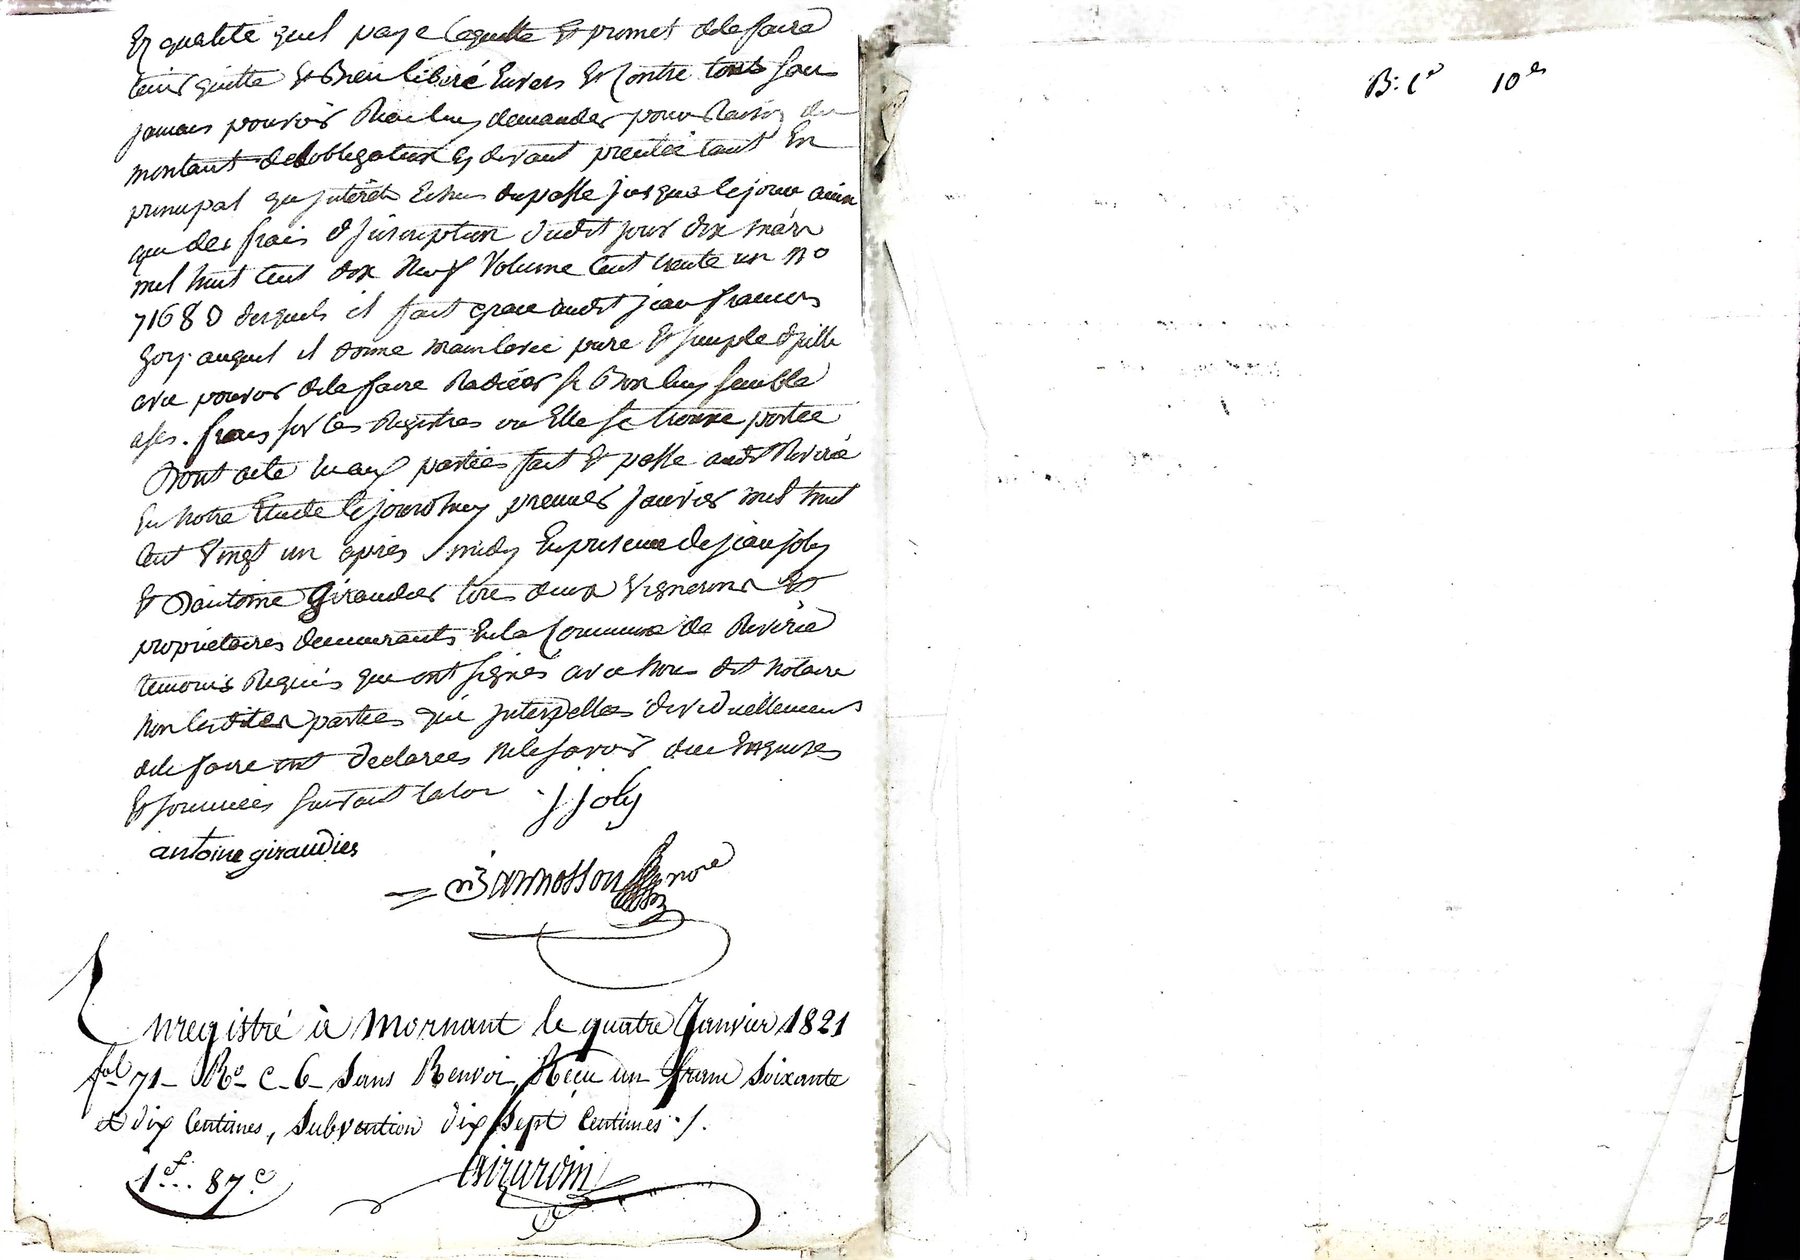 En qualité quel paye laquelle Et promet de le faire
tenir quitte Et Bien libéré Envers Et Contre tous sans
jamais pouvoir Rien luy demander pour Raison du
montant de lobligation Cy devant tant En
principal qu jnterets Echus du passé jusqua ce jour ainsi
que des frais djnscription dudit jour dix mars
mil huit Cent dix Neuf Volume Cent trente un No
71680 desquels il fait grace audit jean francois
Goy auquel il donne mainlevée pure Et simple djcelle
avec pouvoir de la faire Radier si Bon luy semble
a ses frais sur les Registres ou Elle se trouve portée
Dont acte lu aux parties fait Et passé audit Riverie
En notre Etude Cejourdhuy premier janvier mil huit
Cent Vingt un après midy En presence de jean joly
Et Dantoine Giraudier tous deux Vignerons Et
propriétaires demeurants En la Commune de Riverie
temoins Requis que ont signés avec Nous dit Notaire
Non lesdites parties qui jnterpellées
de le faire ont declarées Ne le savoir de ce Enquises
Et sommées suivant la loi j joly
antoine giraudier
Bannosson nore
Enregistré à Mornant le quatre Janvier 1821
fol 71 - Ro C. 6 - Sans Renvoi, Reçu un franc Soixante
et dix Centimes, Subvention dix sept Centimes ./.
1f.. 87c
Girardin
B: Co 10es